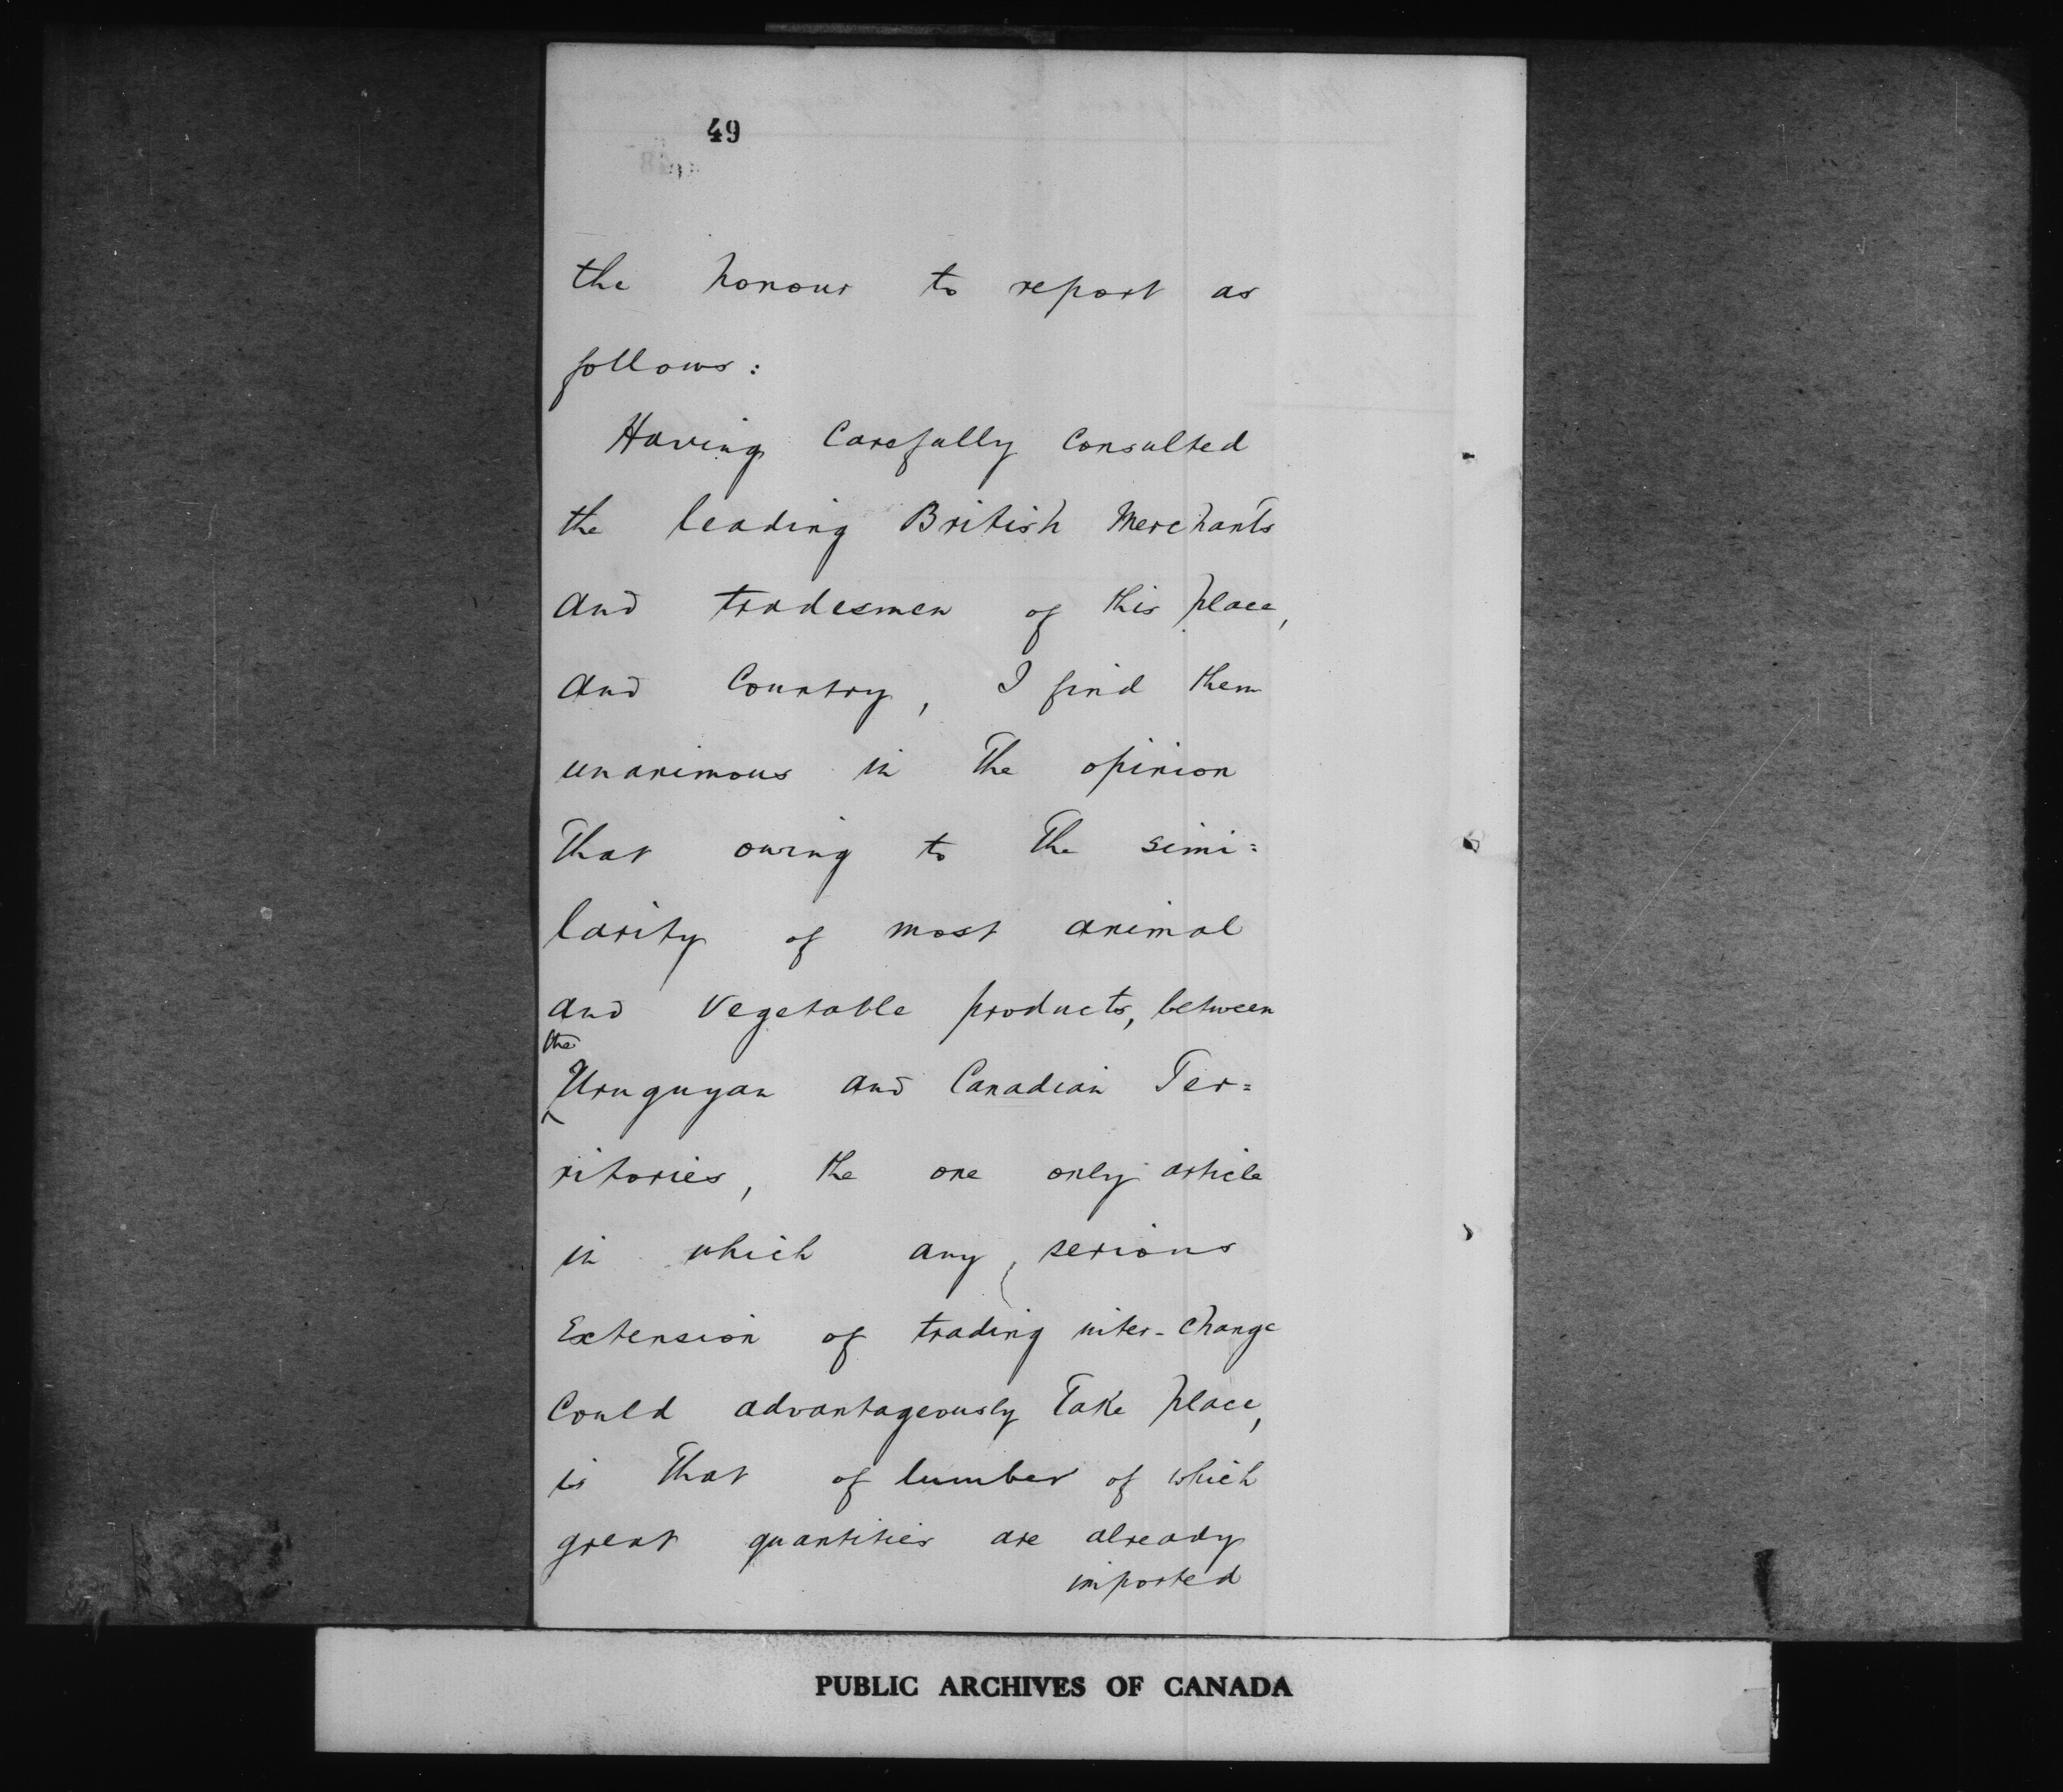 49
the honour to report as
follows:
Having Carefully Consulted
the leading British Merchants
and tradesmen of this place,
and Country, I find them
unanimous in the opinion
That owing to The simi=
larity of most animal
and Vegetable products, between
the
Uruguyan and Canadian Ter=
ritories, the one only article
in which any serious
Extension of trading inter-change
Could advantageously Take place,
is That of lumber of which
great quantities are already
imported
PUBLIC ARCHIVES OF CANADA